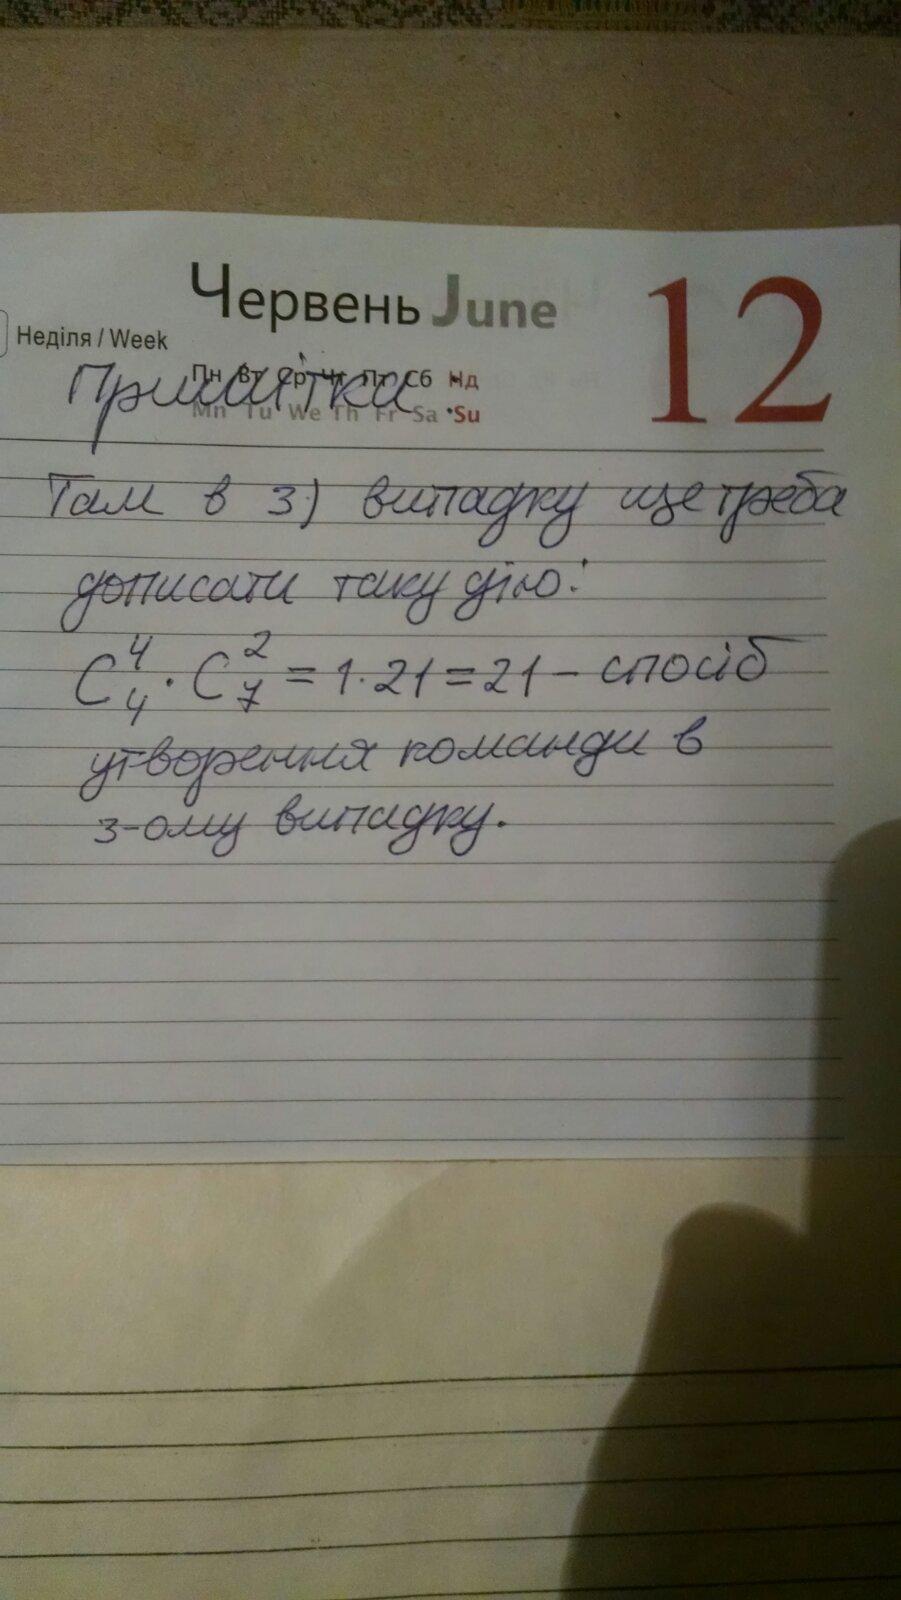 Червень June
12
Неділя / Week
Пн Вт Ср Чт Пт Сб Нд
Mn Tu We Th Fr Sa Su
Примітка
Там в 3) випадку ще треба
дописати таку дію:
C₄⁴ · C₇² = 1·21 = 21 – спосіб
утворення команди в
3-ому випадку.